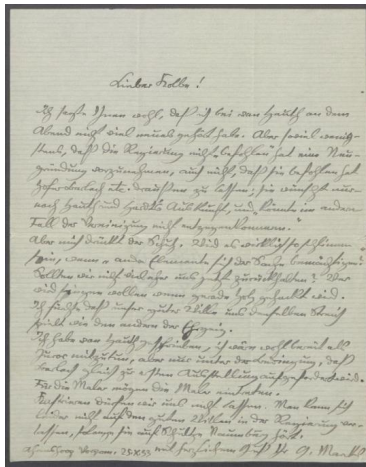 Lieber Kolbe!
Ich sagte Ihnen wohl, daß ich bei van Hauth an dem
Abend nicht viel neues gehört habe. Aber soviel wenig-
stens, daß die Regierung nicht "befohlen" hat eine Neu-
gründung vorzunehmen, auch nicht, daß sie befohlen hat
Hofer, Barlach etc. draußen zu lassen; sie wünscht nur
nach Hauth und Auskunft, und "könnte im andern
Fall der Vereinigung nicht entgegenkommen."
Aber mich drückt der Schuh. Wird es wirklich so schlimm
sein, wenn andere Elemente sich der Sache bemächtigen?
Sollten wir nicht vielleicht uns jetzt zurückhalten? Wer
wird springen wollen wenn gerade Holz gehackt wird.
Ich fürchte daß unser guter Wille uns denselben Streich
spielt wie den andern der Ehrgeiz.
Ich habe van Hauth geschrieben, ich wäre wohl bereit als
Juror mitzutun, aber nur unter der Bedingung, daß
Barlach gleich zur ersten Ausstellung aufgefordert wird.
Für die Maler mögen die Maler eintreten.
dürfen wir uns nicht lassen. Man kann sich
leider nicht auf den guten Willen in der Regierung ver-
lassen, solange sie auf Schultze Naumburg hört.
25 X 33 mit herzlichem Gruß Ihr G. Marcks